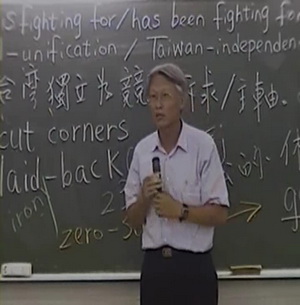 s fighting for/has been fighting for
-unification / Taiwan-independen
台灣獨立為競 球/主軸.
cut corners
laid-back 的
iron
zero-s